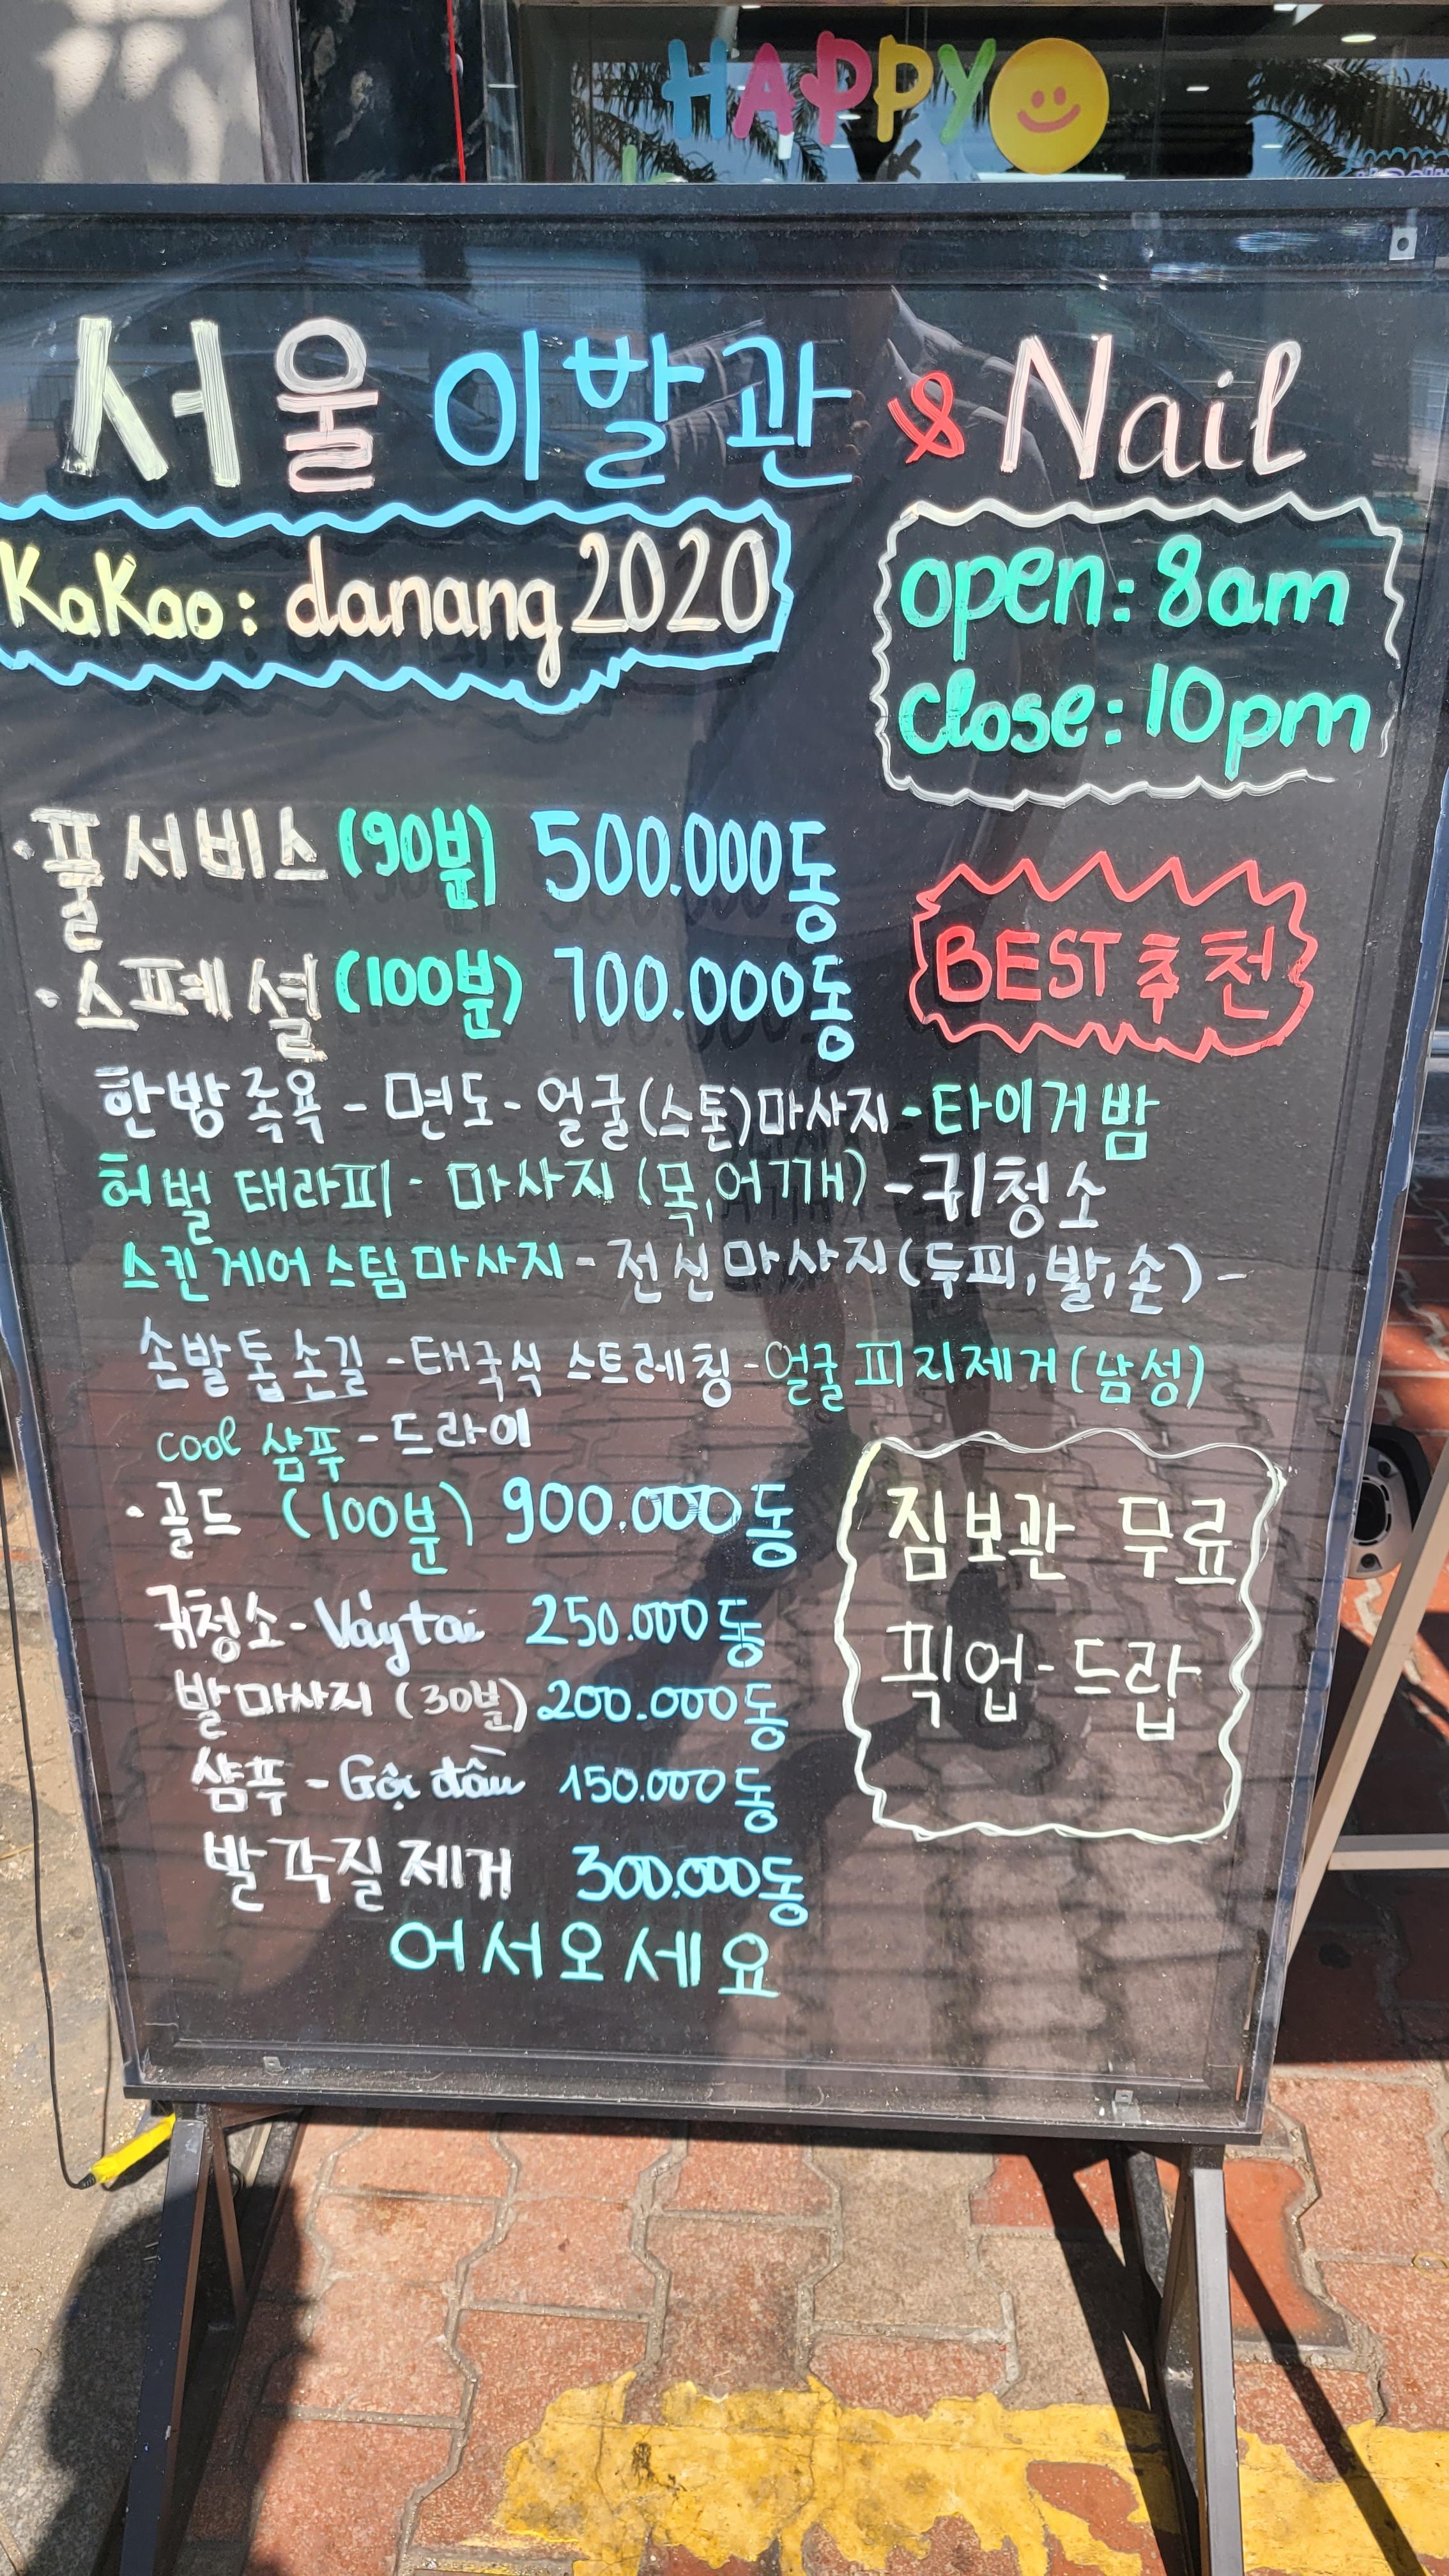 HAPPY
서울 이발관 & Nail
KaKao: danang 2020
open: 8am
close: 10pm
· 풀서비스 (90분) 500.000동
· 스페셜 (100분) 700.000동
BEST 추천
한방족욕 - 면도 - 얼굴(스톤)마사지 - 타이거밤
허벌 태라피 - 마사지 (목,어깨) - 귀청소
스킨케어스팀마사지 - 전신마사지(두피,발,손) -
손발톱손질 - 태국식 스트레칭 - 얼굴피지제거(남성)
cool 샴푸 - 드라이
· 골드 (100분) 900.000동
귀청소 - Váy tai 250.000동
발마사지 (30분) 200.000동
샴푸 - Gội đầu 150.000동
발각질제거 300.000동
어서오세요
짐보관 무료
픽업 - 드랍